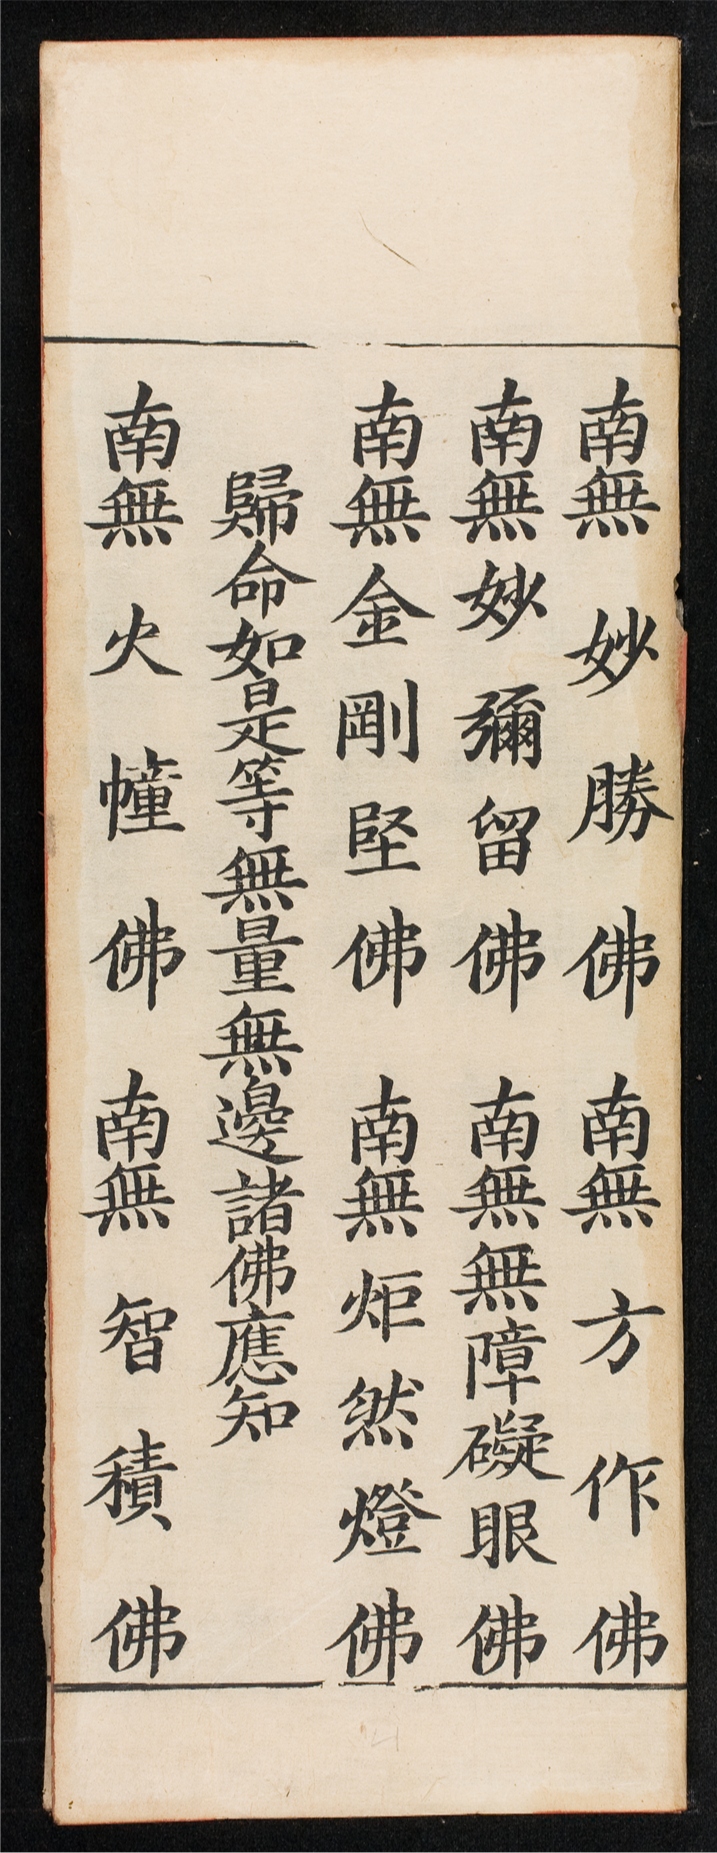 南無妙勝佛南無方作佛
南無妙彌留佛南無無障礙眼佛
南無金剛堅佛南無炬然燈佛
歸命如是等無量無邊諸佛應知
南無火幢佛南無智積佛